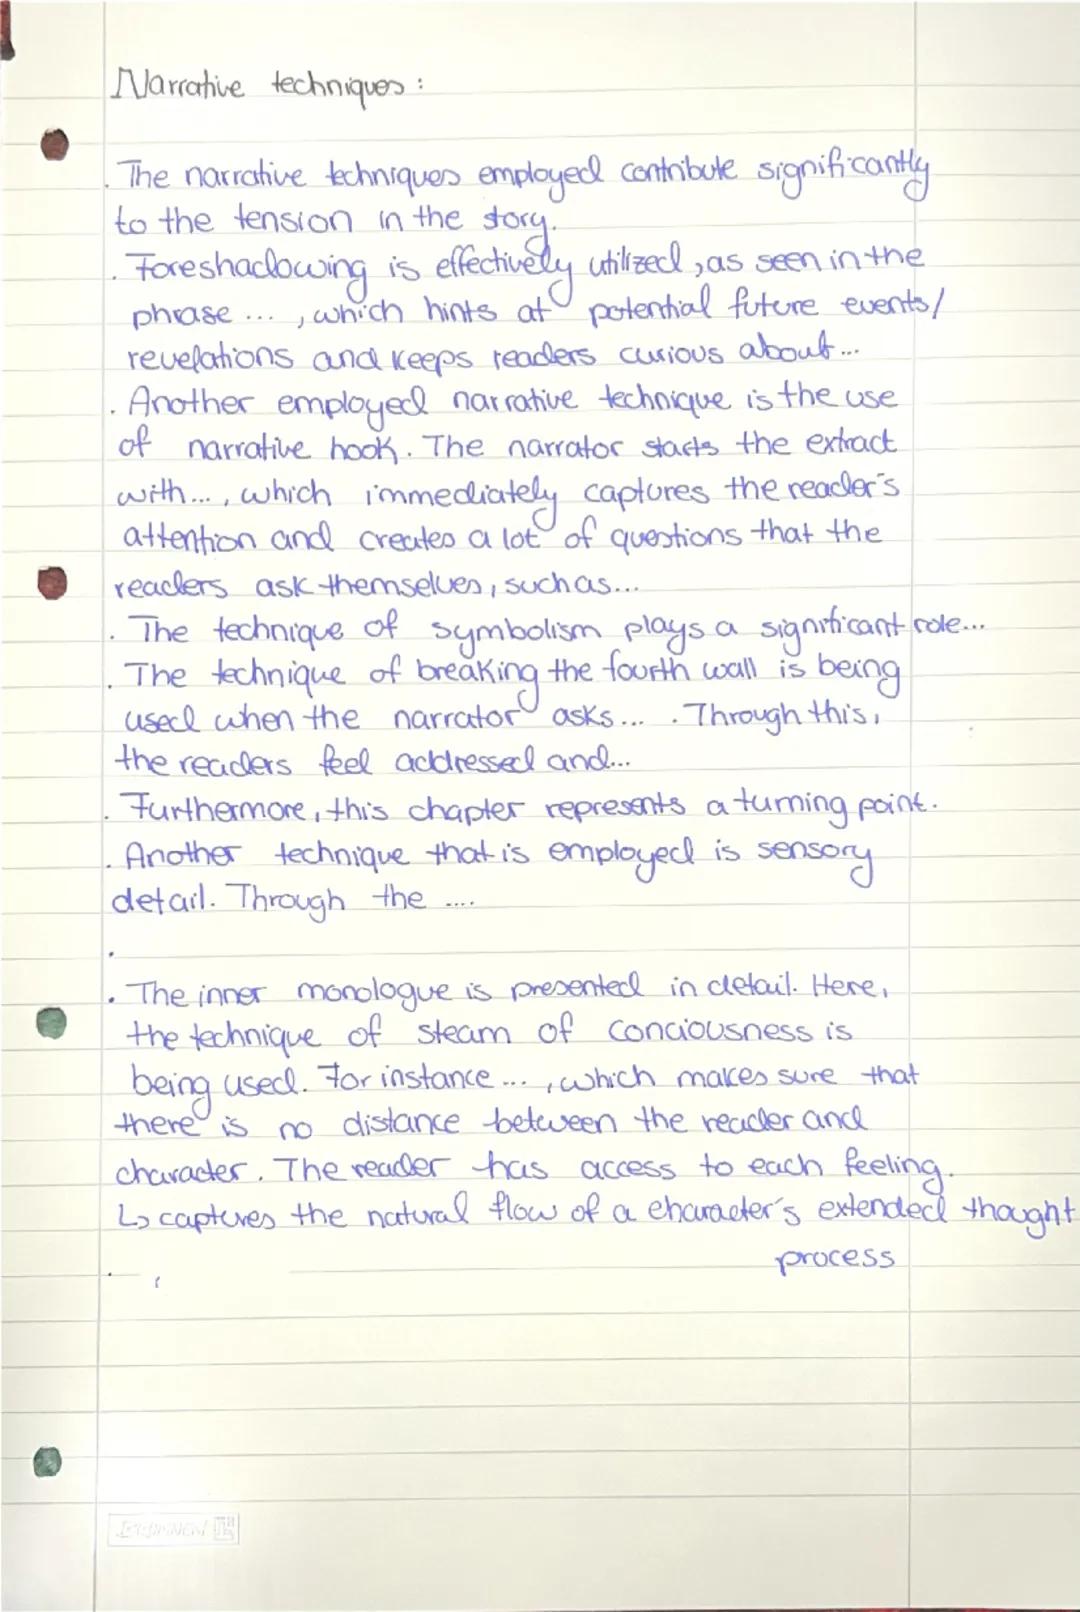 Narrative techniques:
. The narrative techniques employed contribute significantly
to the tension in the story.
. Foreshadowing is effectively utilized, as seen in the
phrase ... , which hints at potential future events/
revelations and keeps readers curious about...
. Another employed narrative technique is the use
of narrative hook. The narrator starts the extract
with..., which immediately captures the reader's
attention and creates a lot of questions that the
readers ask themselves, such as...
. The technique of symbolism plays a significant role...
. The technique of breaking the fourth wall is being
used when the narrator asks... . Through this,
the readers feel addressed and...
. Furthermore, this chapter represents a turning point.
. Another technique that is employed is sensory
detail. Through the ....
.
. The inner monologue is presented in detail. Here,
the technique of steam of conciousness is
being used. For instance ... , which makes sure that
there is no distance between the reader and
character. The reader has access to each feeling.
↳ captures the natural flow of a character's extended thought
process